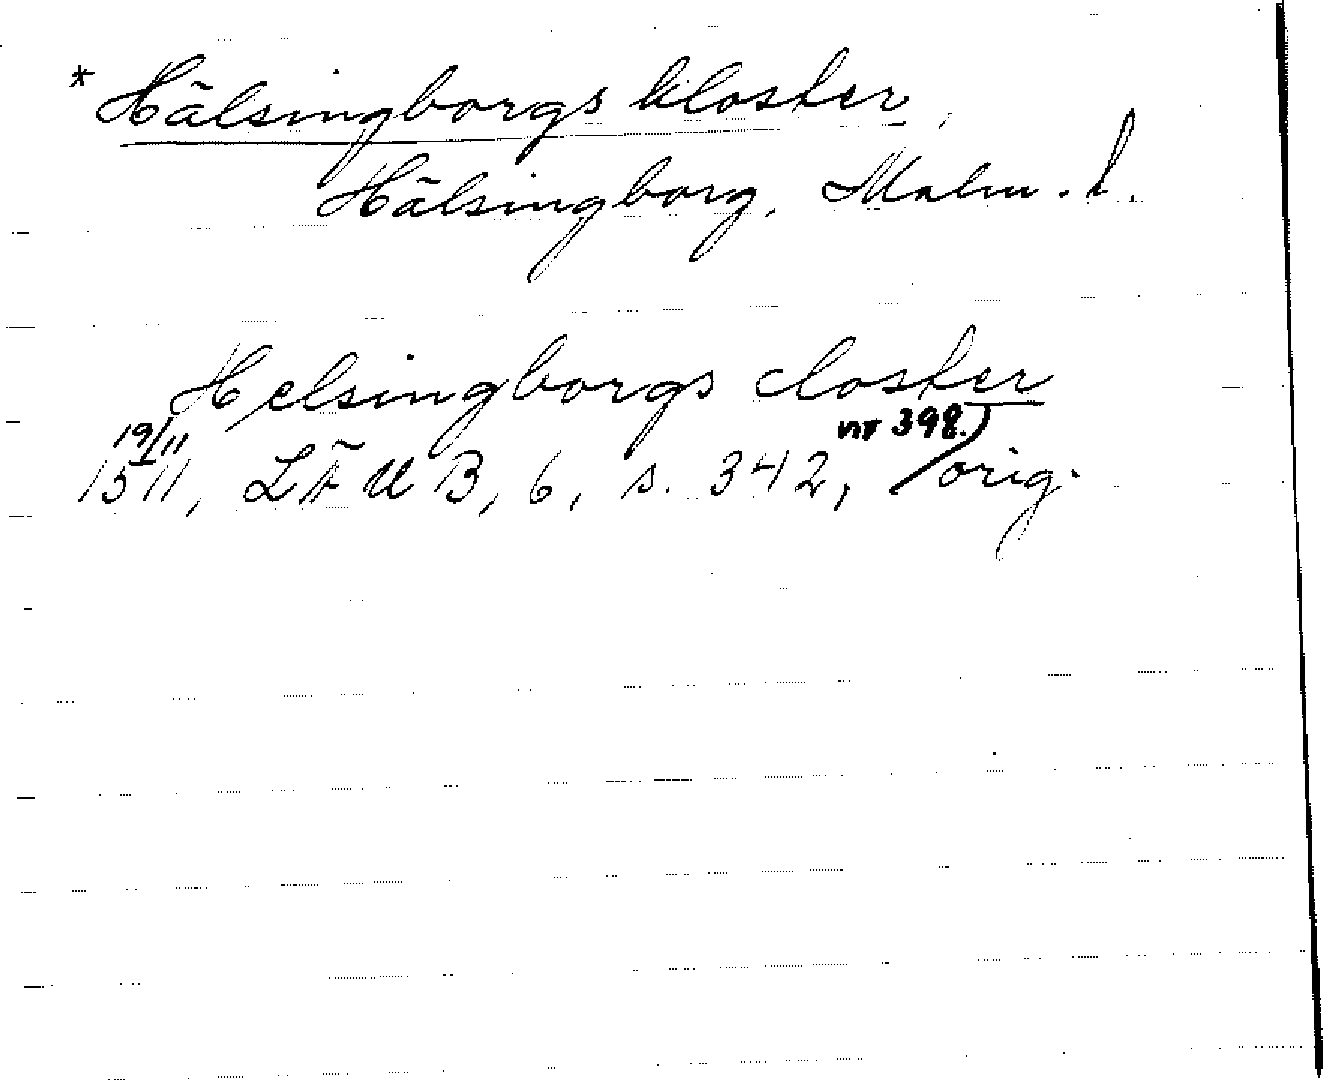 * Hälsingborgs kloster,
Hälsingborg, Malm. l.
Helsingborgs closter
19/11 nr 398.
1511, LÄUB, 6, s. 342, orig.